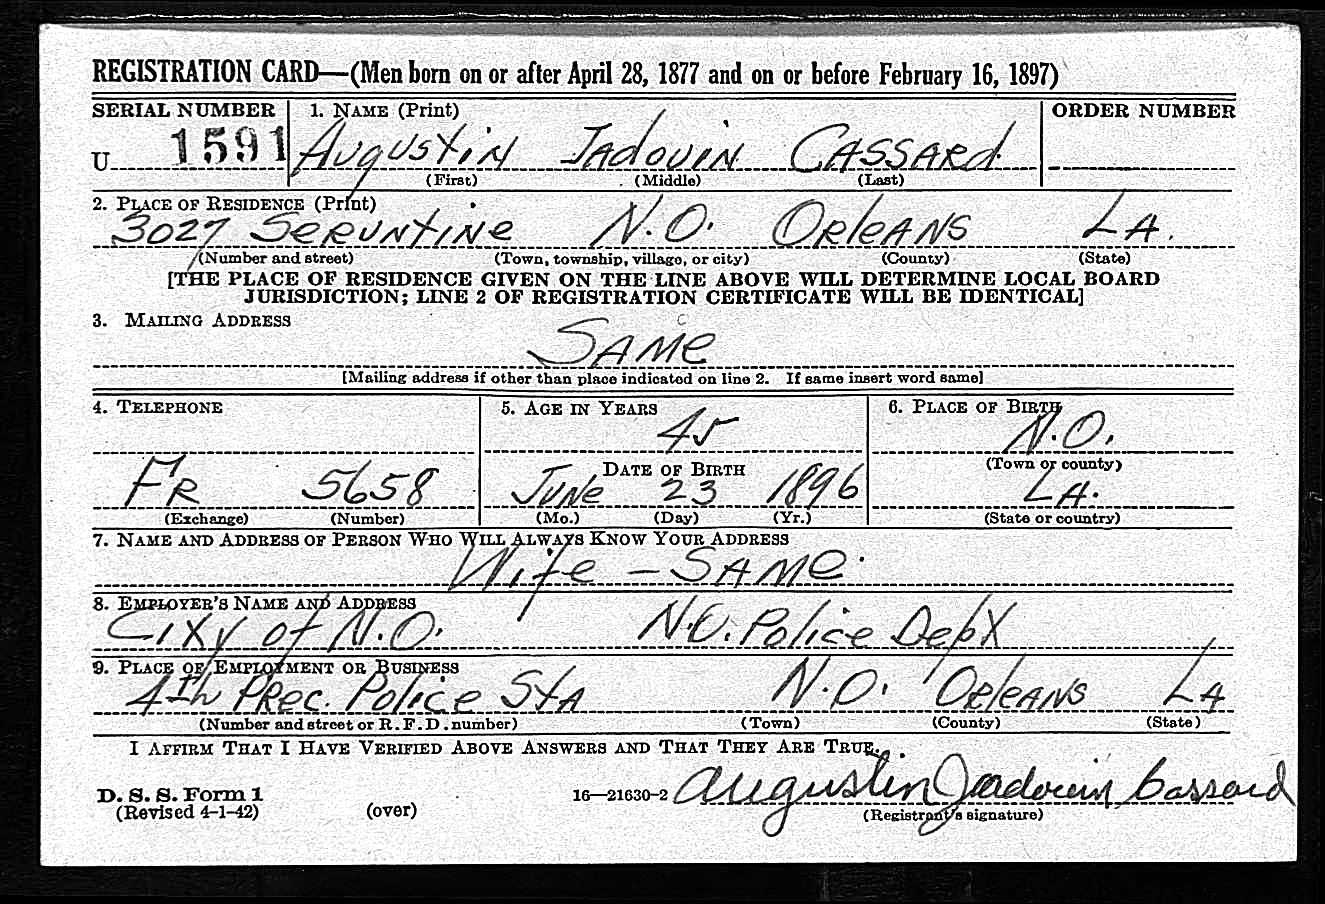 REGISTRATION CARD—(Men born on or after April 28, 1877 and on or before February 16, 1897)
SERIAL NUMBER 1. NAME (Print) ORDER NUMBER
U 1591 Augustin Jadouin Cassard
(First) (Middle) (Last)
2. PLACE OF RESIDENCE (Print)
3027 Seruntine N.O. Orleans La.
(Number and street) (Town, township, village, or city) (County) (State)
[THE PLACE OF RESIDENCE GIVEN ON THE LINE ABOVE WILL DETERMINE LOCAL BOARD
JURISDICTION; LINE 2 OF REGISTRATION CERTIFICATE WILL BE IDENTICAL]
3. MAILING ADDRESS
Same
[Mailing address if other than place indicated on line 2. If same insert word same]
4. TELEPHONE 5. AGE IN YEARS 6. PLACE OF BIRTH
45 N.O.
DATE OF BIRTH (Town or county)
Fr 5658 June 23 1896 La.
(Exchange) (Number) (Mo.) (Day) (Yr.) (State or country)
7. NAME AND ADDRESS OF PERSON WHO WILL ALWAYS KNOW YOUR ADDRESS
Wife - Same.
8. EMPLOYER'S NAME AND ADDRESS
City of N.O. N.O. Police Dept
9. PLACE OF EMPLOYMENT OR BUSINESS
4th Prec. Police Sta N.O. Orleans La
(Number and street or R.F.D. number) (Town) (County) (State)
I AFFIRM THAT I HAVE VERIFIED ABOVE ANSWERS AND THAT THEY ARE TRUE.
D. S. S. Form 1 16—21630-2 Augustin Jadouin Cassard
(Revised 4-1-42) (over) (Registrant's signature)